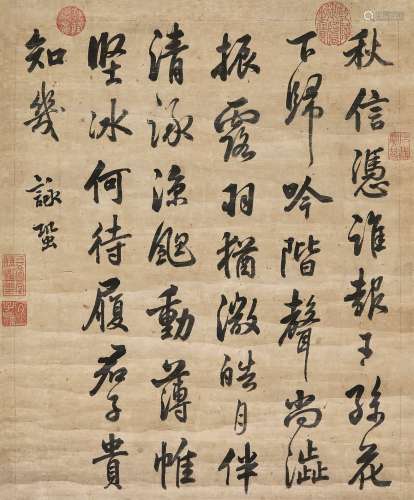 秋信憑誰報王孫花
下歸吟階聲尚澁
振露羽猶微皓月伴
清涼颸動薄帷
堅冰何待履君子貴
知幾 詠蛩